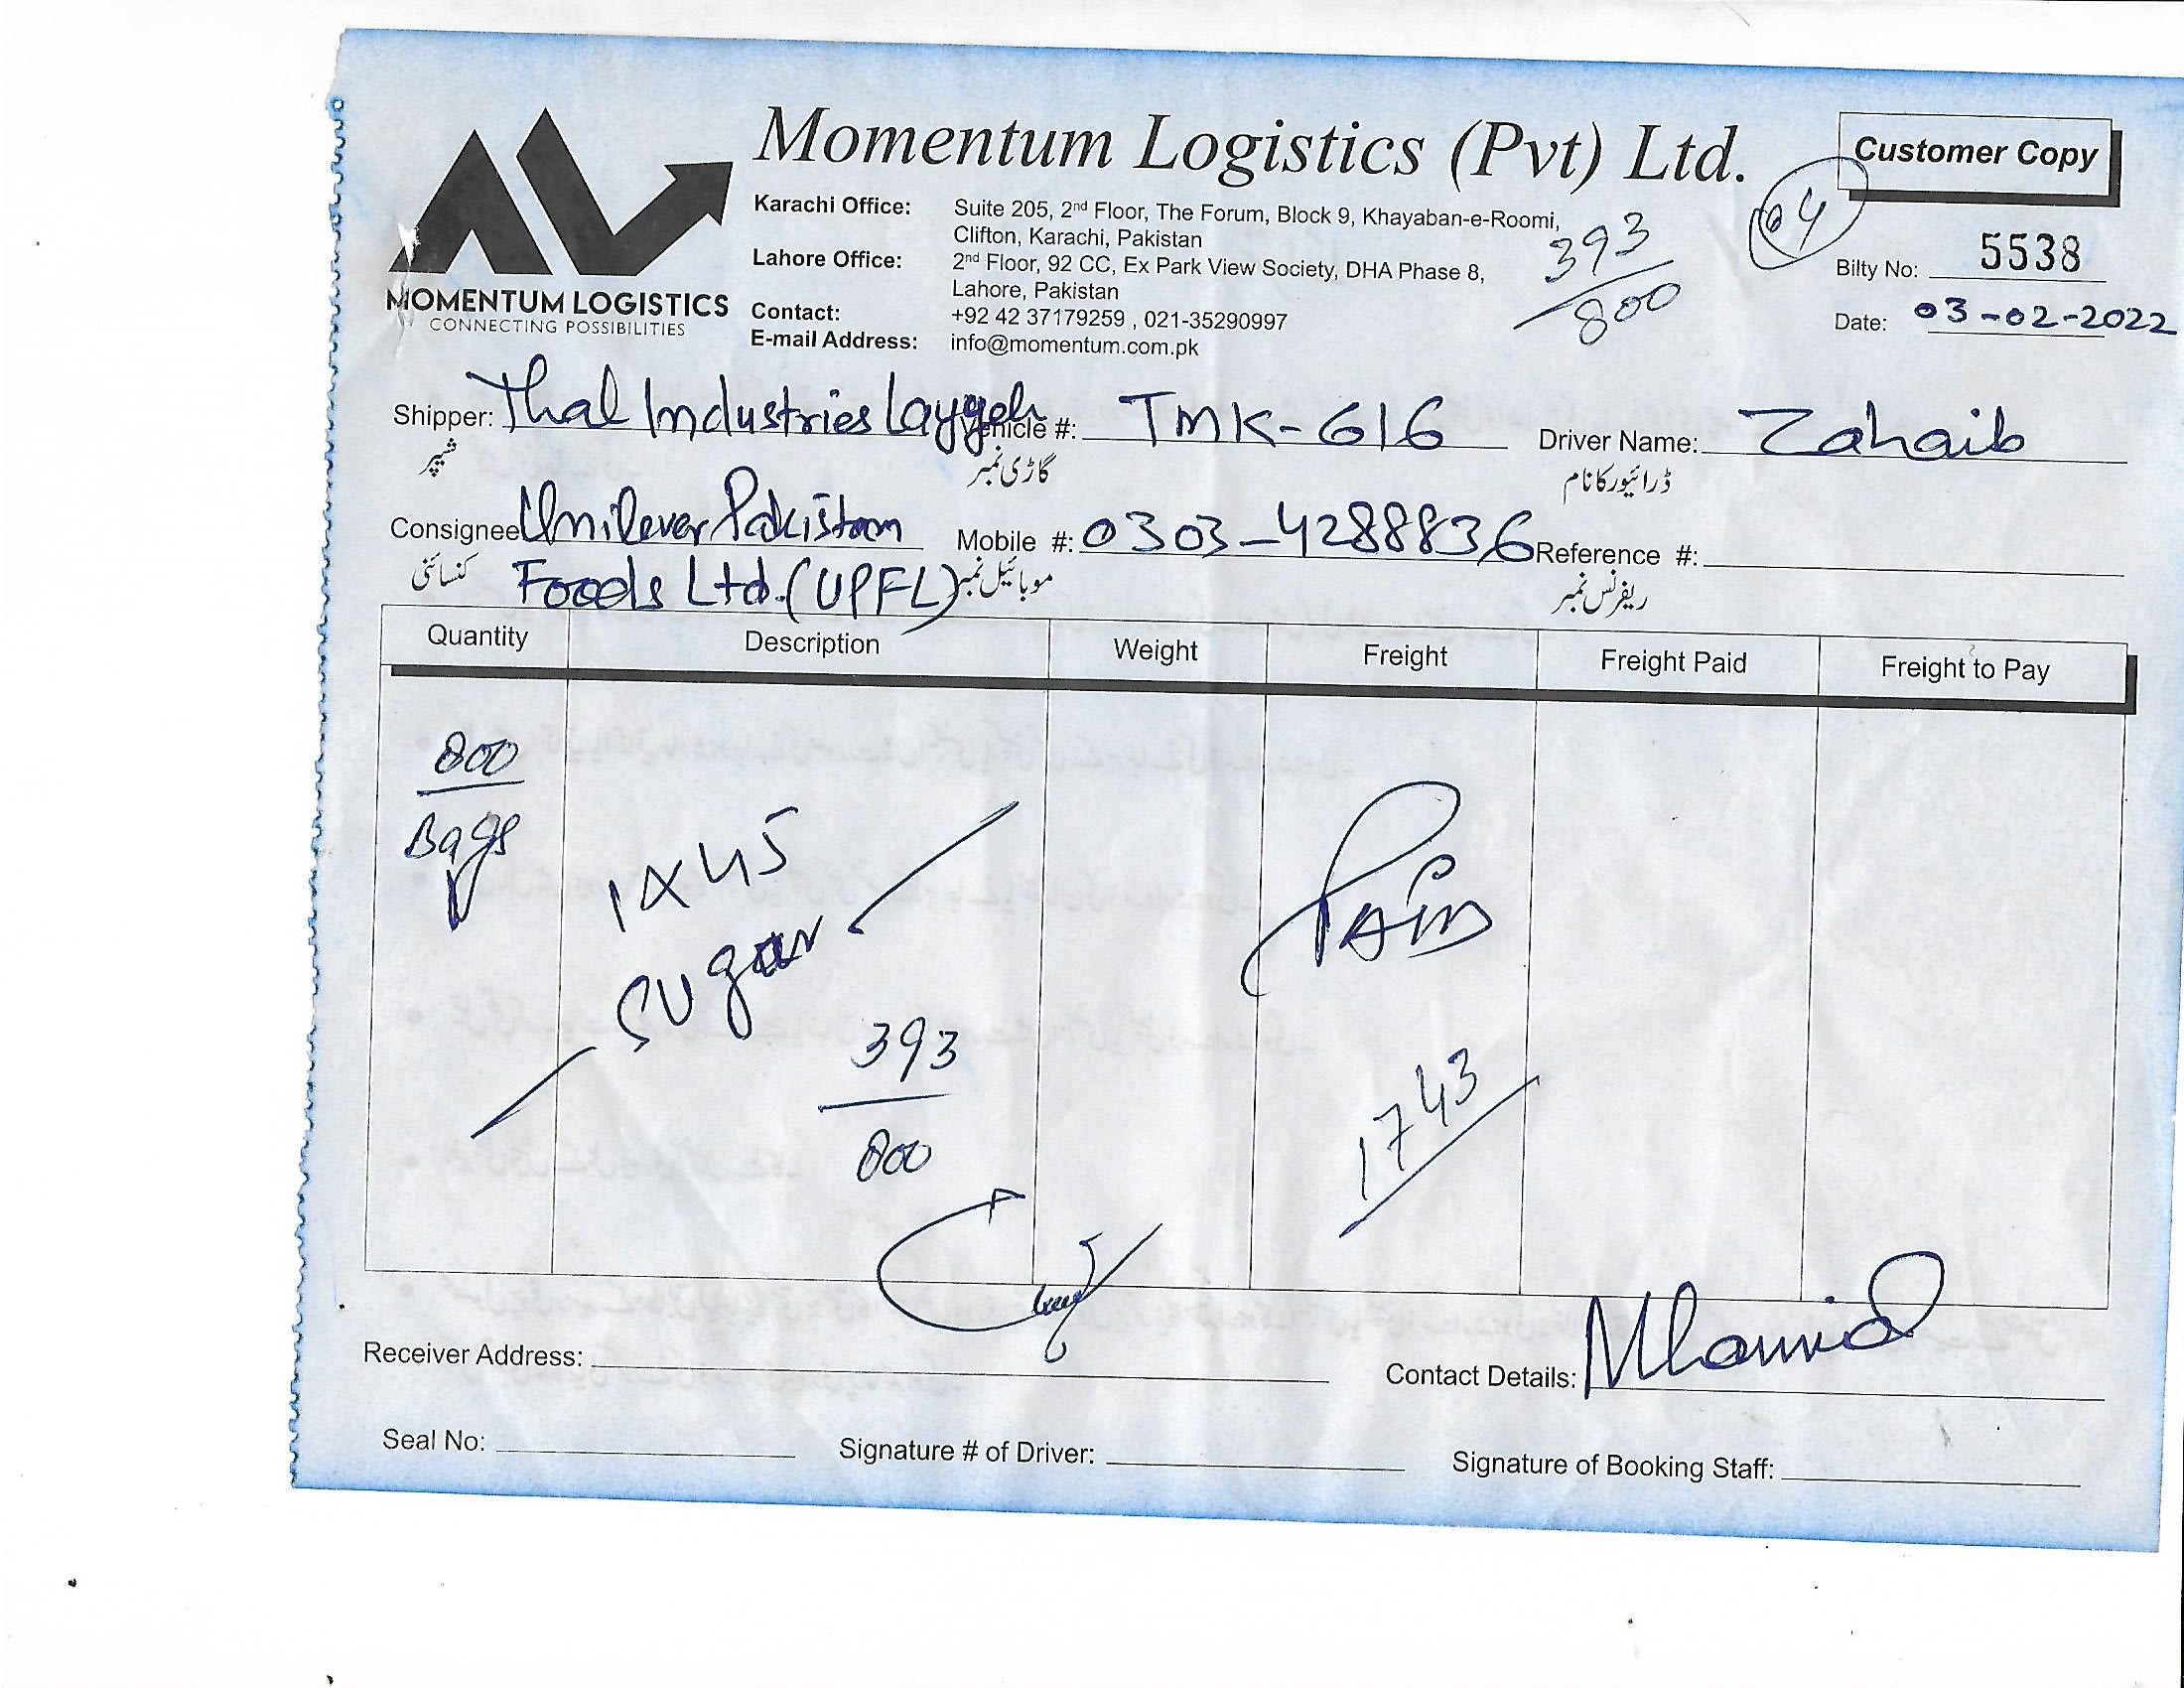 Momentum Logistics (Pvt) Ltd.
Customer Copy
04
MOMENTUM LOGISTICS
CONNECTING POSSIBILITIES
Karachi Office: Suite 205, 2nd Floor, The Forum, Block 9, Khayaban-e-Roomi,
Clifton, Karachi, Pakistan
Lahore Office: 2nd Floor, 92 CC, Ex Park View Society, DHA Phase 8,
Lahore, Pakistan
Contact: +92 42 37179259 , 021-35290997
E-mail Address: info@momentum.com.pk
393
800
Bilty No: 5538
Date: 03-02-2022
Shipper: Thal Industries Layyah Vehicle #: TMK-616 Driver Name: Zahaib
شیپر گاڑی نمبر ڈرائیور کا نام
Consignee Unilever Pakistan Mobile #: 0303-4288836 Reference #:
کنسائنی Foods Ltd. (UPFL) موبائیل نمبر ریفرنس نمبر
Quantity Description Weight Freight Freight Paid Freight to Pay
800
Bags
1x45
Sugar
393
800
Paid
1743
Receiver Address: Contact Details:
Seal No: Signature # of Driver: Signature of Booking Staff: